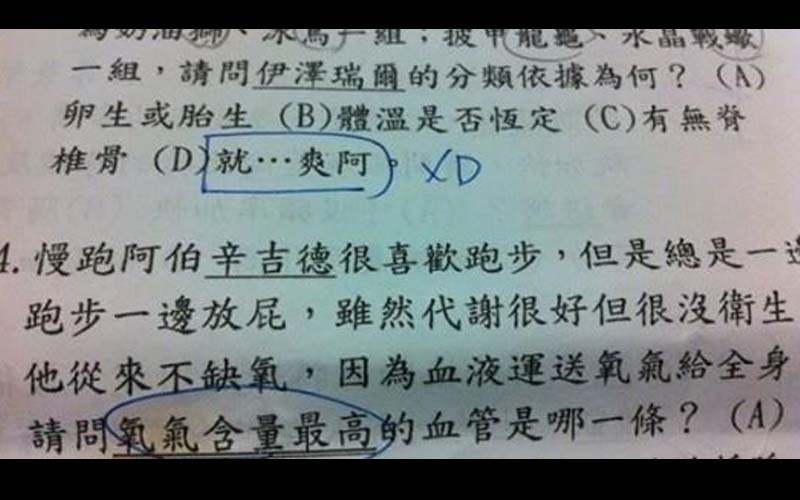 為奶油獅、冰鳥一組；披甲龍龜、水晶戰蠍
一組，請問伊澤瑞爾的分類依據為何？(A)
卵生或胎生 (B)體溫是否恆定 (C)有無脊
椎骨 (D)就…爽阿。XD
4. 慢跑阿伯辛吉德很喜歡跑步，但是總是一邊
跑步一邊放屁，雖然代謝很好但很沒衛生
他從來不缺氧，因為血液運送氧氣給全身
請問氧氣含量最高的血管是哪一條？(A)